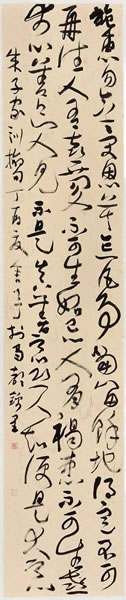 施惠勿念受恩莫忘凡事當留餘地得意不宜
再往人有喜慶不可生妒忌心人有禍患不可生喜
幸心善欲人見不是真善惡恐人知便是大惡
朱子家訓摘句丁酉夏於